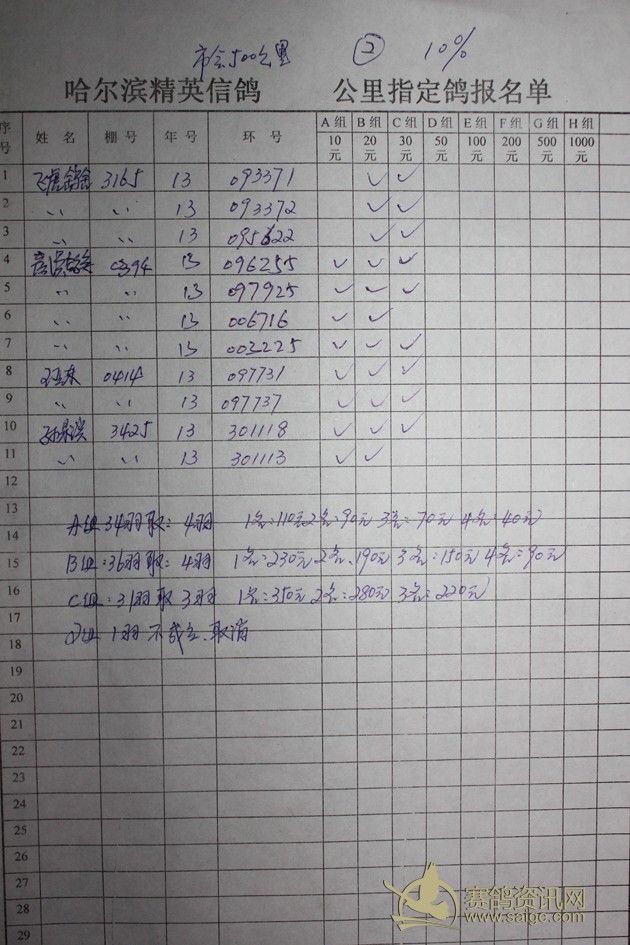 市会500公里 ② 10%
哈尔滨精英信鸽 公里指定鸽报名单
序号 姓名 棚号 年号 环号 A组10元 B组20元 C组30元 D组50元 E组100元 F组200元 G组500元 H组1000元
1 3165 13 093371 ✓ ✓
2 〃 〃 13 093372 ✓ ✓
3 〃 〃 13 095622 ✓ ✓
4 0394 13 096255 ✓ ✓ ✓
5 〃 〃 13 097925 ✓ ✓ ✓
6 〃 〃 13 006716 ✓ ✓
7 〃 〃 13 003225 ✓ ✓ ✓
8 0414 13 097731 ✓ ✓ ✓
9 〃 〃 13 097737 ✓ ✓ ✓
10 3425 13 301118 ✓ ✓ ✓
11 〃 〃 13 301113 ✓ ✓
12
13
A组34羽取:4羽 1名:110元 2名:90元 3名:70元 4名:40元
14
B组:36羽取:4羽 1名:230元 2名:190元 3名:150元 4名:90元
15
16
C组:31羽取3羽 1名:350元 2名:280元 3名:220元
17
D组1羽不成立、取消
18
19
20
21
22
23
24
25
26
27
28
29
赛鸽资讯网
www.saige.com